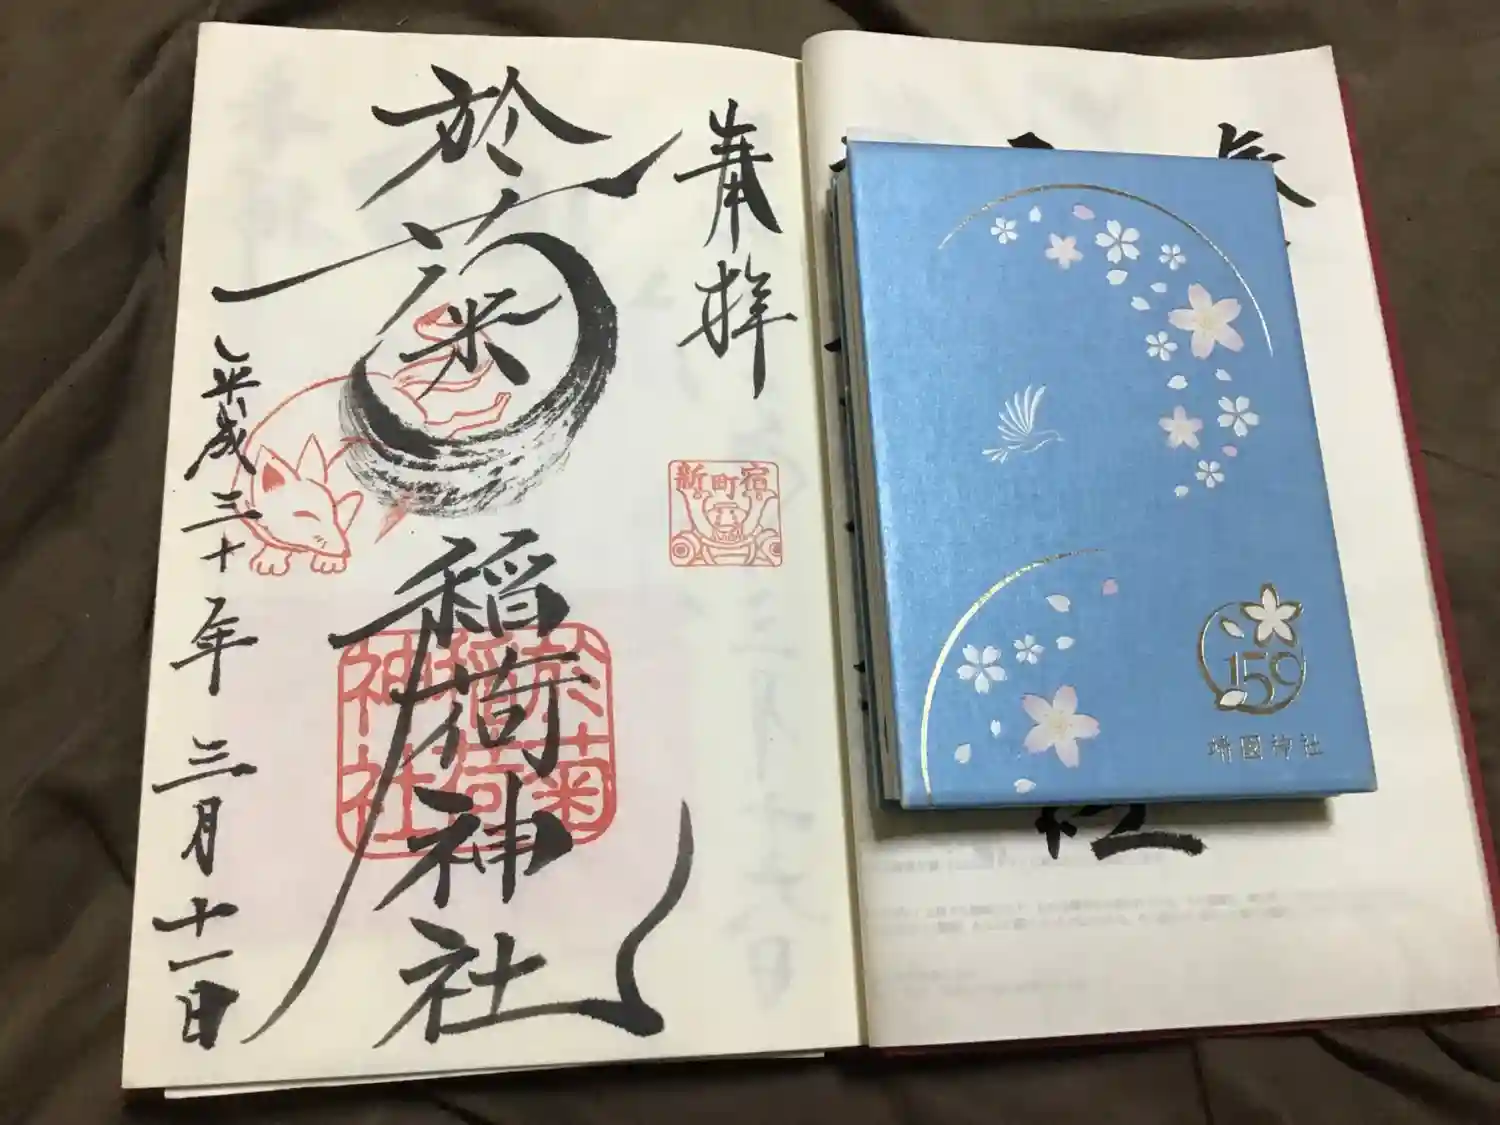 奉拝
新町宿
於菊
稲荷神社
於菊
稲荷
神社
平成三十年三月十一日
150
靖國神社